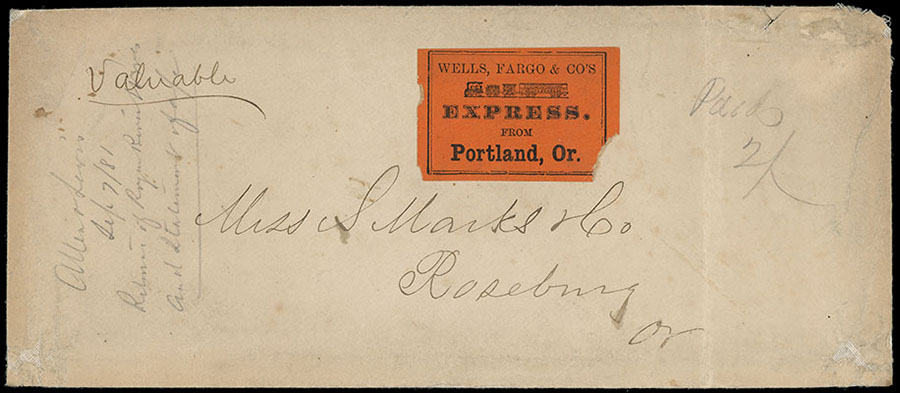 Valuable
WELLS, FARGO & CO'S
EXPRESS.
FROM
Portland, Or.
Paid
2/
Miss S Marks & Co
Roseburg
Or
Allen & Lewis
Sep 7/81
Return of
And Statement of